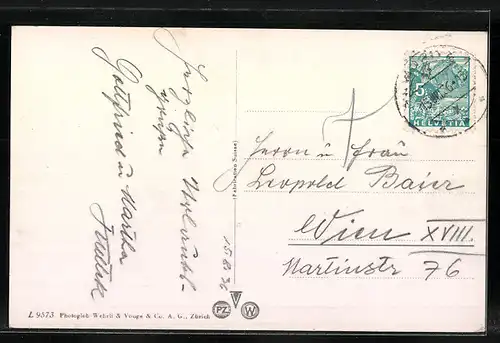 Herzliche Urlaubs-
grüsse
Gottfried u Martha
15.8.36
(Fabrication Suisse)
5
HELVETIA
Herrn u Frau
Leopold Baier
Wien XVIII.
Martinstr 76
PZ W
L 9373 Photoglob-Wehrli & Vouga & Co. A. G., Zürich